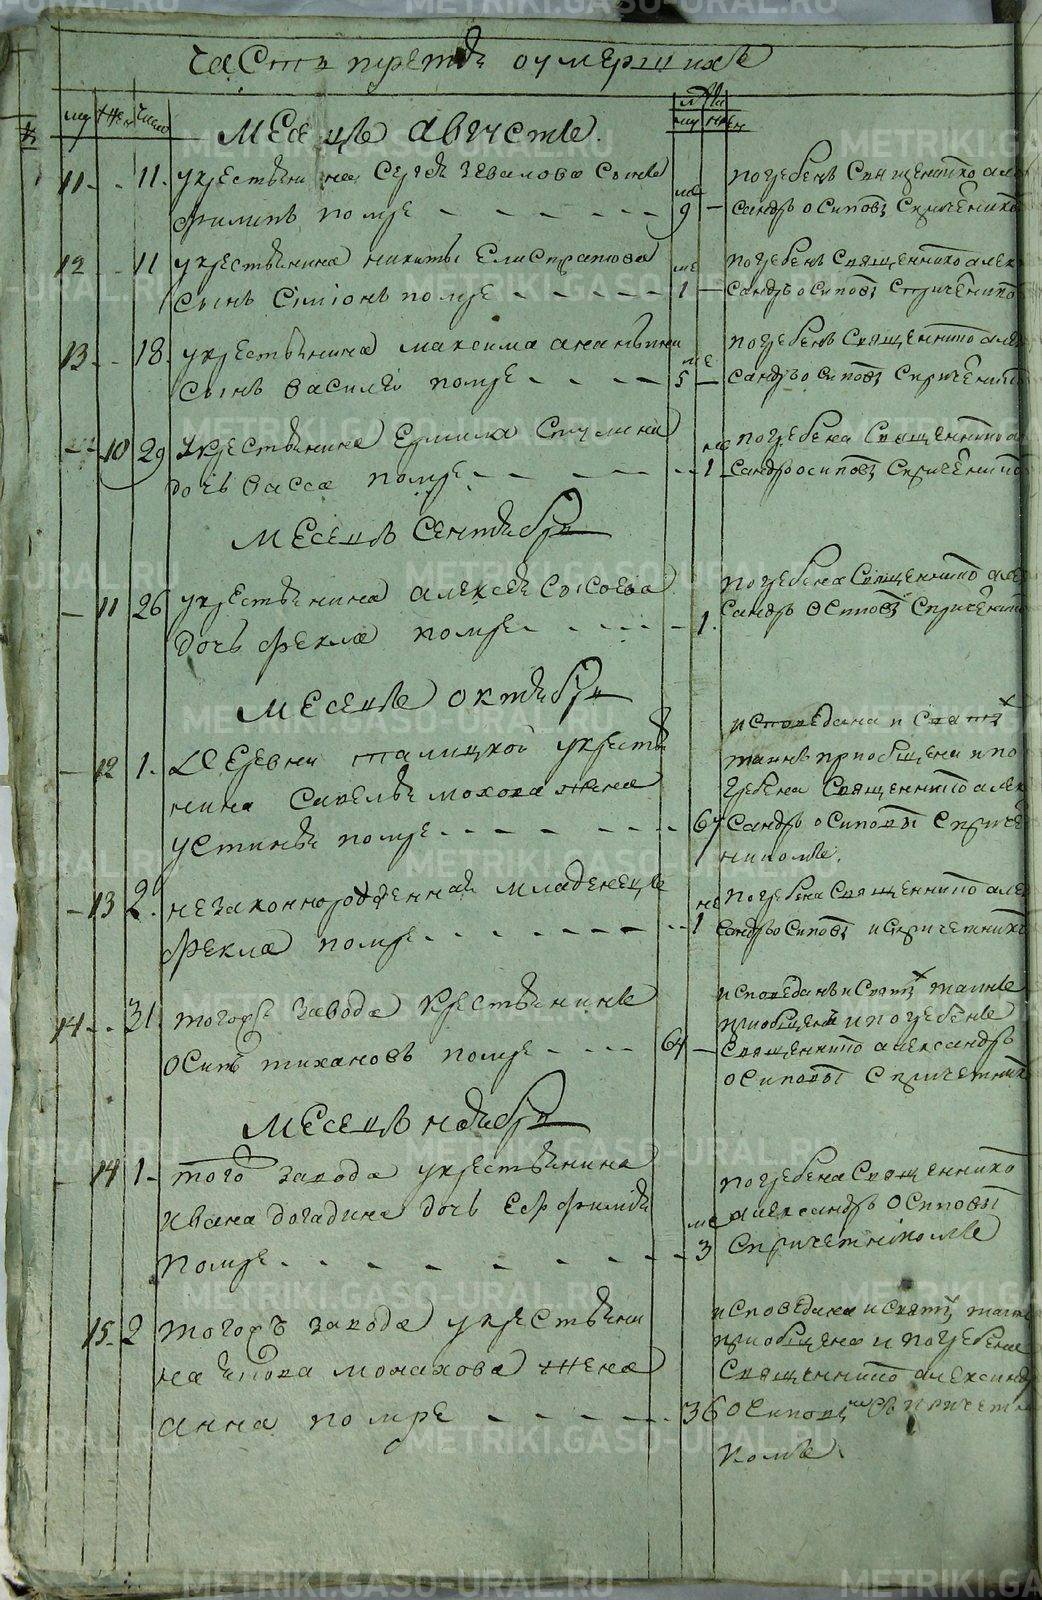 Часть третья о умершихъ
муж жен число
лѣта
муж жен
Месецъ августъ.
11 - - 11. у крестьянина Сергея сынъ
Филипъ помре - - - - - - - ме 9 -
погребенъ священникомъ Алек
сандръ Осиповъ с причетником
12 - - 11 у крестьянина Никиты Елистратова
сынъ Симионъ помре - - - - - ме 1 -
погребенъ священникомъ Алек
сандръ Осиповъ с причетником
13 - - 18. у крестьянина Максима Ананьина
сынъ Василей помре - - - - ме 5 -
погребенъ священникомъ Алек
сандръ Осиповъ с причетником
- - 10 29 у крестьянина Ермила
дочь Васса помре - - - - - - не 1
погребена священникомъ Ал
сандръ Осиповъ с причетником
Месецъ сентябрь
- 11 26 у крестьянина Алексея Сысоева
дочь Фекла помре - - - - - 1.
погребена священникомъ Алек
сандръ Осиповъ с причетником
Месецъ октябрь
- 12 1. деревни Талицкой у крестья
нина Савелья Мохова жена
Устинья помре - - - - - - - 67
исповедана и святых
таинъ приобщена и по
гребена священникомъ Алек
сандръ Осиповы с приче
никомъ.
- 13 2. незаконнорожденная младенецъ
Фекла помре - - - - - - - - не 1
погребена священникомъ Алек
сандръ Осиповъ и с причетником
14 - - 31. того жъ завода крестьянинъ
Осипъ Тихановъ помре - - - - 64 -
исповеданъ и святых таинъ
приобщенъ и погребенъ
священникомъ Александръ
Осиповы с причетник
Месецъ ноябрь
- 14 1 - того завода у крестьянина
Ивана дочь Ефимия
помре - - - - - - - - - ме 3
погребена священником
Александръ Осиповы
с причетникомъ
15 - 2 того жъ завода у крестьяни
на Монахова жена
Анна помре - - - - - - - 36
исповедана и святых таинъ
приобщена и погребена
священникомъ Александр
Осиповым съ причетни
комъ.